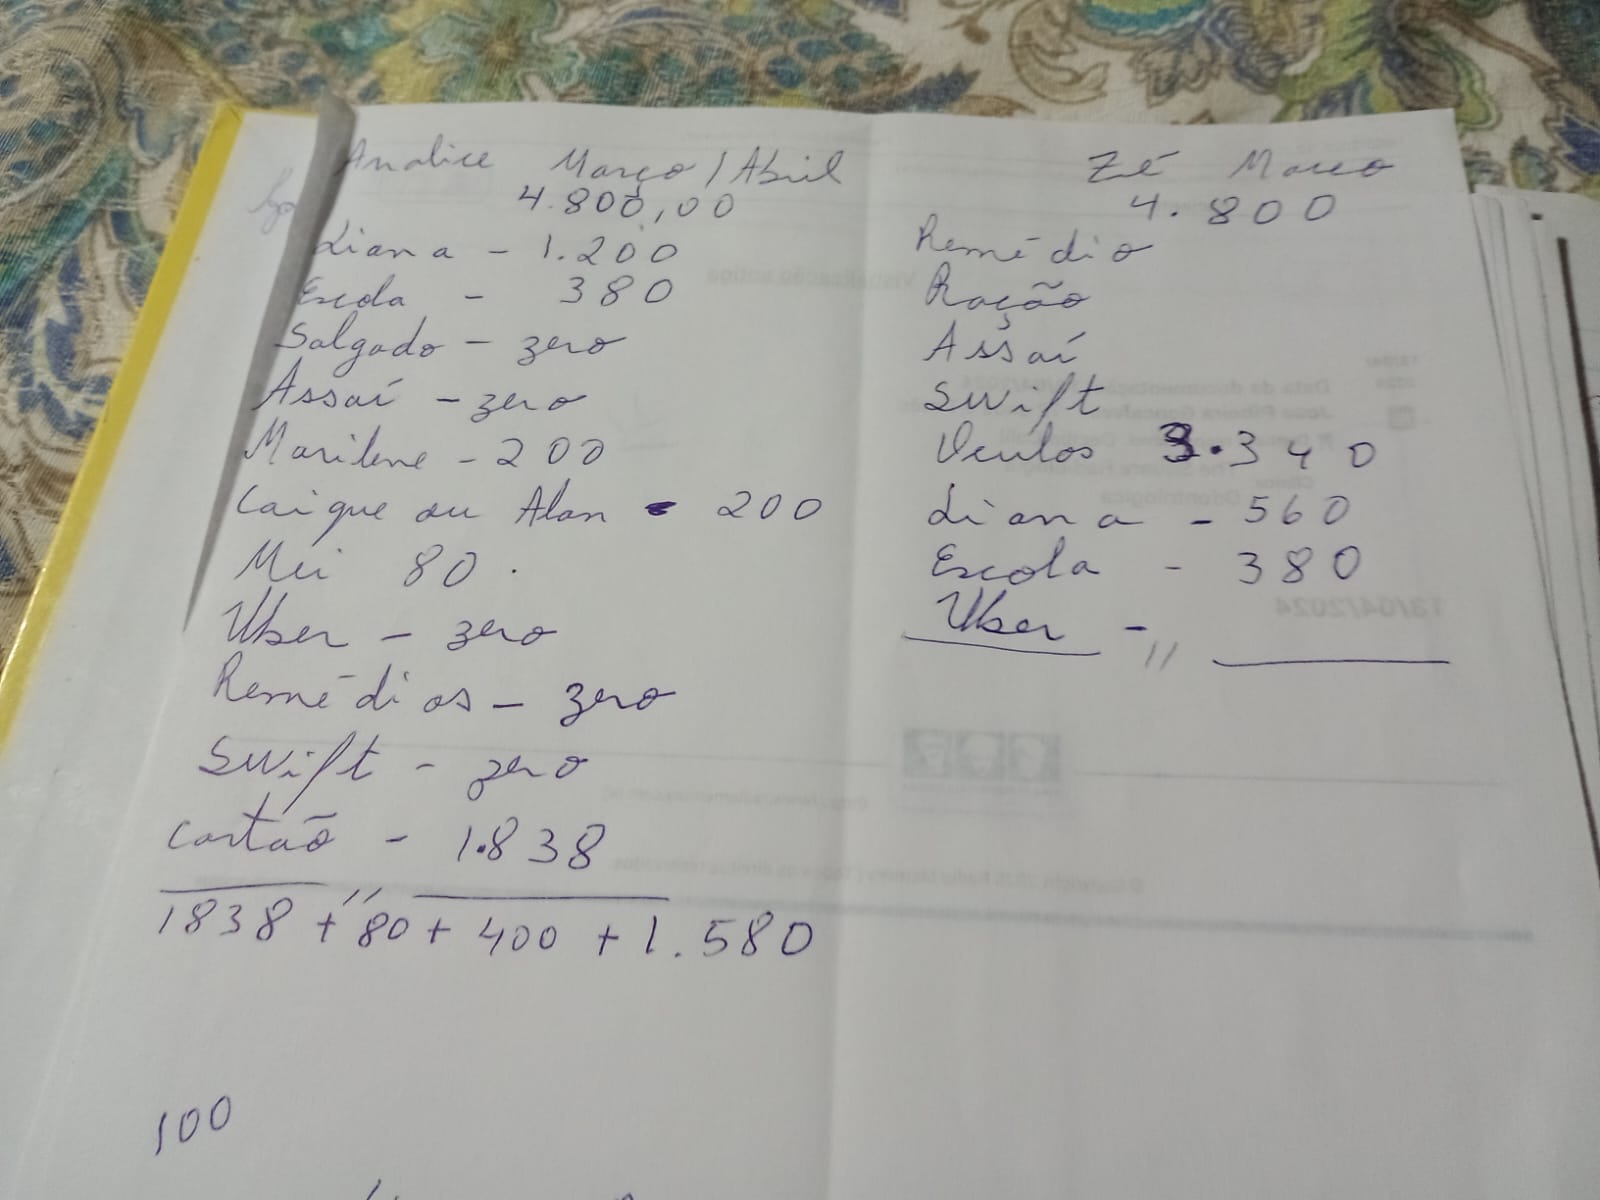 Analice Março / Abril
4.800,00
Liana - 1.200
Escola - 380
Salgado - zero
Assaí - zero
Marilene - 200
Caique ou Alan - 200
Mei 80.
Uber - zero
Remédios - zero
Swift - zero
Cartão - 1.838
1838 + 80 + 400 + 1.580
100
Zé Março
4.800
Remédio
Ração
Assaí
Swift
3.340
Liana - 560
Escola - 380
Uber -
13/04/2024